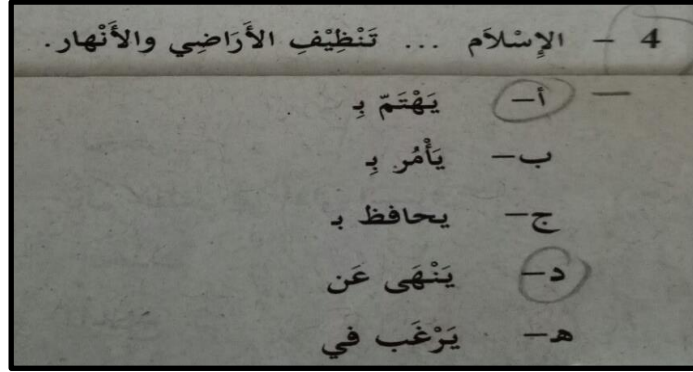 4 – الإِسْلاَم ... تَنْظِيْفِ الأَرَاضِي والأَنْهار.
أ– يَهْتَمّ بِـ
ب– يَأْمُر بِـ
ج– يحافظ بـ
د– يَنْهَى عَن
هـ– يَرْغَب في